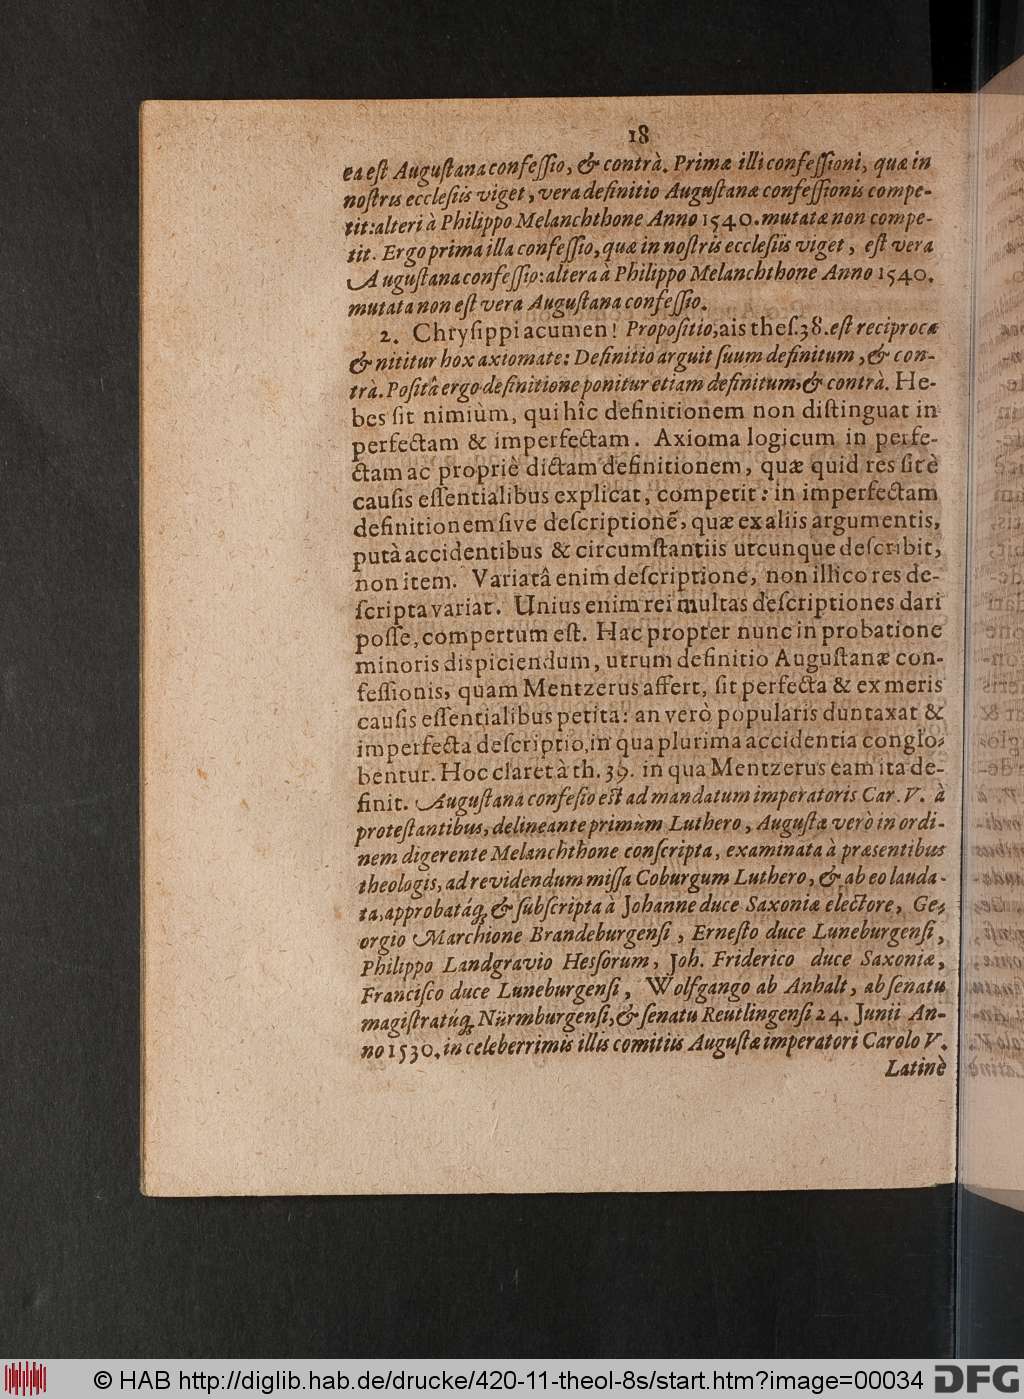 18
ea eſt Auguſtana confeſſio, & contrà. Primæ illi confeſſioni, quæ in
noſtris eccleſiis viget, vera definitio Auguſtanæ confeſſionis compe-
tit: alteri à Philippo Melanchthone Anno 1540. mutatæ non compe-
tit. Ergo prima illa confeſſio, quæ in noſtris eccleſiis viget, eſt vera
Auguſtana confeſſio: altera à Philippo Melanchthone Anno 1540.
mutata non eſt vera Auguſtana confeſſio.
2. Chryſippi acumen! Propoſitio, ais theſ. 38. eſt reciproca
& nititur hox axiomate: Definitio arguit ſuum definitum, & con-
trà. Poſitâ ergo definitione ponitur etiam definitum, & contrà. He-
bes ſit nimiùm, qui hîc definitionem non diſtinguat in
perfectam & imperfectam. Axioma logicum in perfe-
ctam ac propriè dictam definitionem, quæ quid res ſit è
cauſis eſſentialibus explicat, competit: in imperfectam
definitionem ſive deſcriptionẽ, quæ ex aliis argumentis,
putà accidentibus & circumſtantiis utcunque deſcribit,
non item. Variatâ enim deſcriptione, non illico res de-
ſcripta variat. Unius enim rei multas deſcriptiones dari
poſſe, compertum eſt. Hac propter nunc in probatione
minoris diſpiciendum, utrum definitio Auguſtanæ con-
feſſionis, quam Mentzerus affert, ſit perfecta & ex meris
cauſis eſſentialibus petita: an verò popularis duntaxat &
imperfecta deſcriptio, in qua plurima accidentia conglo-
bentur. Hoc claret à th. 39. in qua Mentzerus eam ita de-
finit. Auguſtana confeſio eſt ad mandatum imperatoris Car. V. à
proteſtantibus, delineante primùm Luthero, Auguſtæ verò in ordi-
nem digerente Melanchthone conſcripta, examinata à præsentibus
theologis, ad revidendum miſſa Coburgum Luthero, & ab eo lauda-
ta, approbatáq; & ſubſcripta à Johanne duce Saxoniæ electore, Ge-
orgio Marchione Brandeburgenſi, Erneſto duce Luneburgenſi,
Philippo Landgravio Hesſorum, Joh. Friderico duce Saxoniæ,
Franciſco duce Luneburgenſi, Wolfgango ab Anhalt, ab ſenatu
magiſtratúq; Nürmburgenſi, & ſenatu Reutlingenſi 24. Junii An-
no 1530. in celeberrimis illis comitiis Auguſtæ imperatori Carolo V.
Latinè
© HAB http://diglib.hab.de/drucke/420-11-theol-8s/start.htm?image=00034
DFG